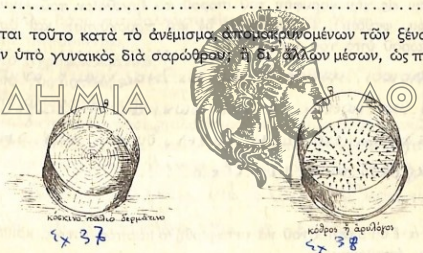 ται τοῦτο κατὰ τὸ ἀνέμισμα, ἀπομακρυνομένων τῶν ξένω
ν ὑπὸ γυναικὸς διὰ σαρώθρου; ἢ δι' ἄλλων μέσων, ὡς π
ΔΗΜΙΑ ΑΘ
κόσκινο παλιό δερμάτινο
κόθρος ἢ ἀρυλόγος
Σχ 37
Σχ 38